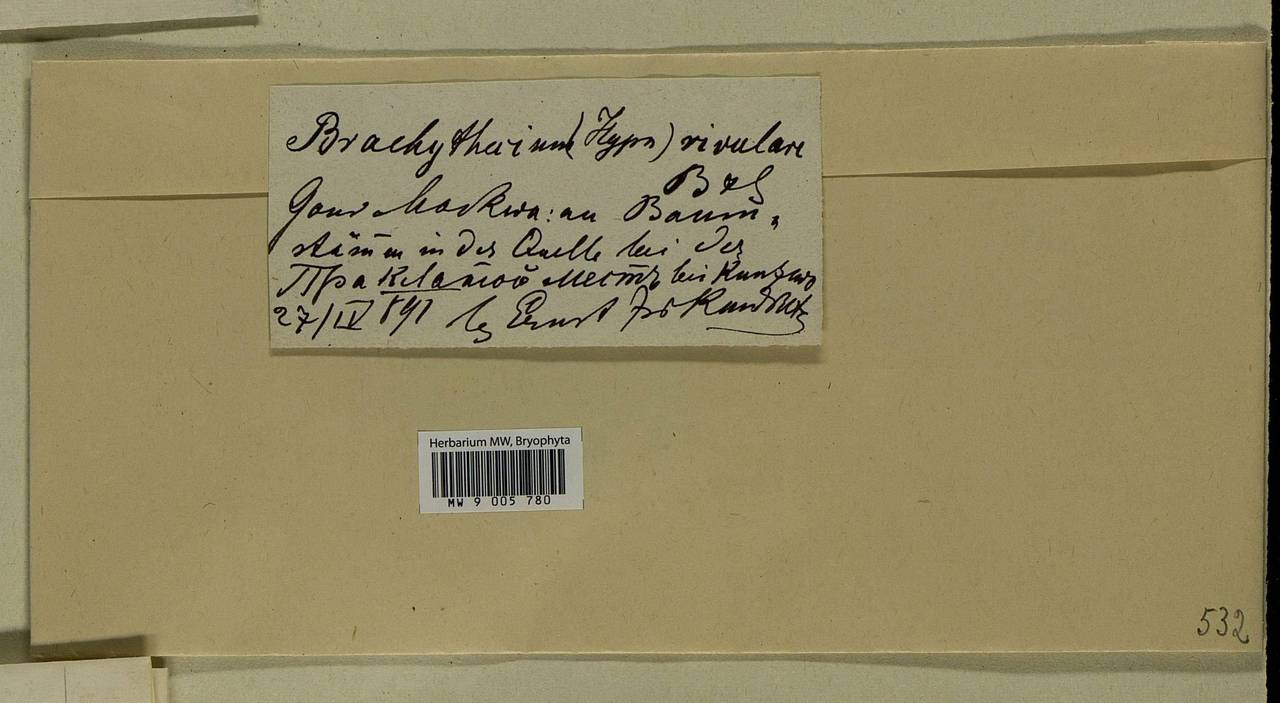 Brachythecium (Hypn) rivulare
B & S
Gouv Moskwa: an Baum,
stämm in der Quelle bei der
Проклятой место bei Kunzewo
27/IV 891 lg Ernst
532
Herbarium MW, Bryophyta
MW 9 005 780